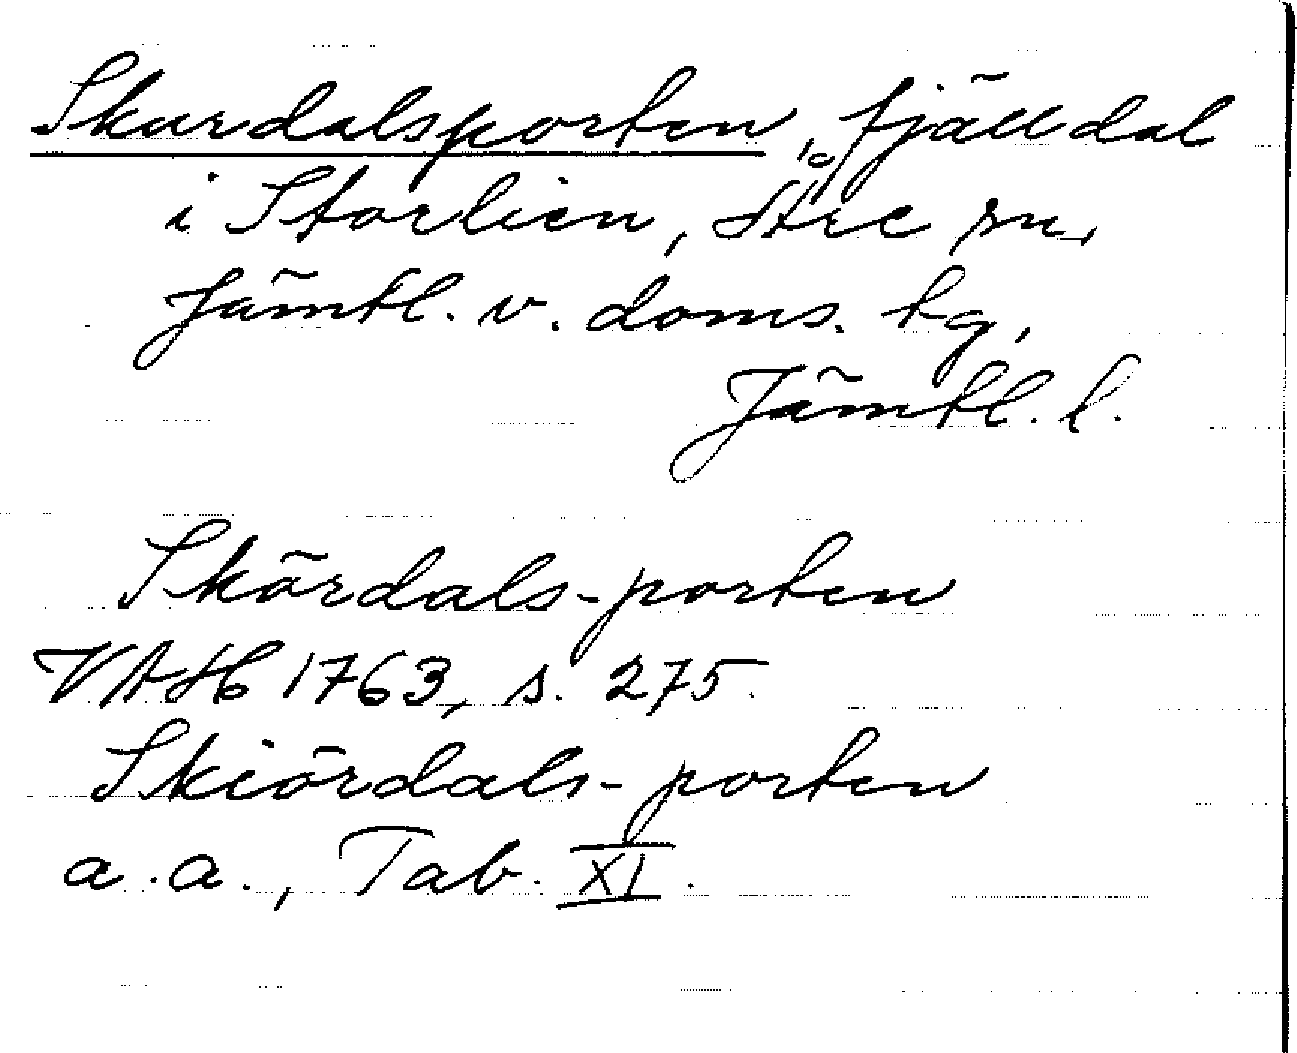 Skurdalsporten, fjälldal
i Storlien, Åre sn,
Jämtl. v. doms. tg,
Jämtl. l.
Skördals-porten
VAH 1763, s. 275.
Skiördals-porten
a.a., Tab. XI.